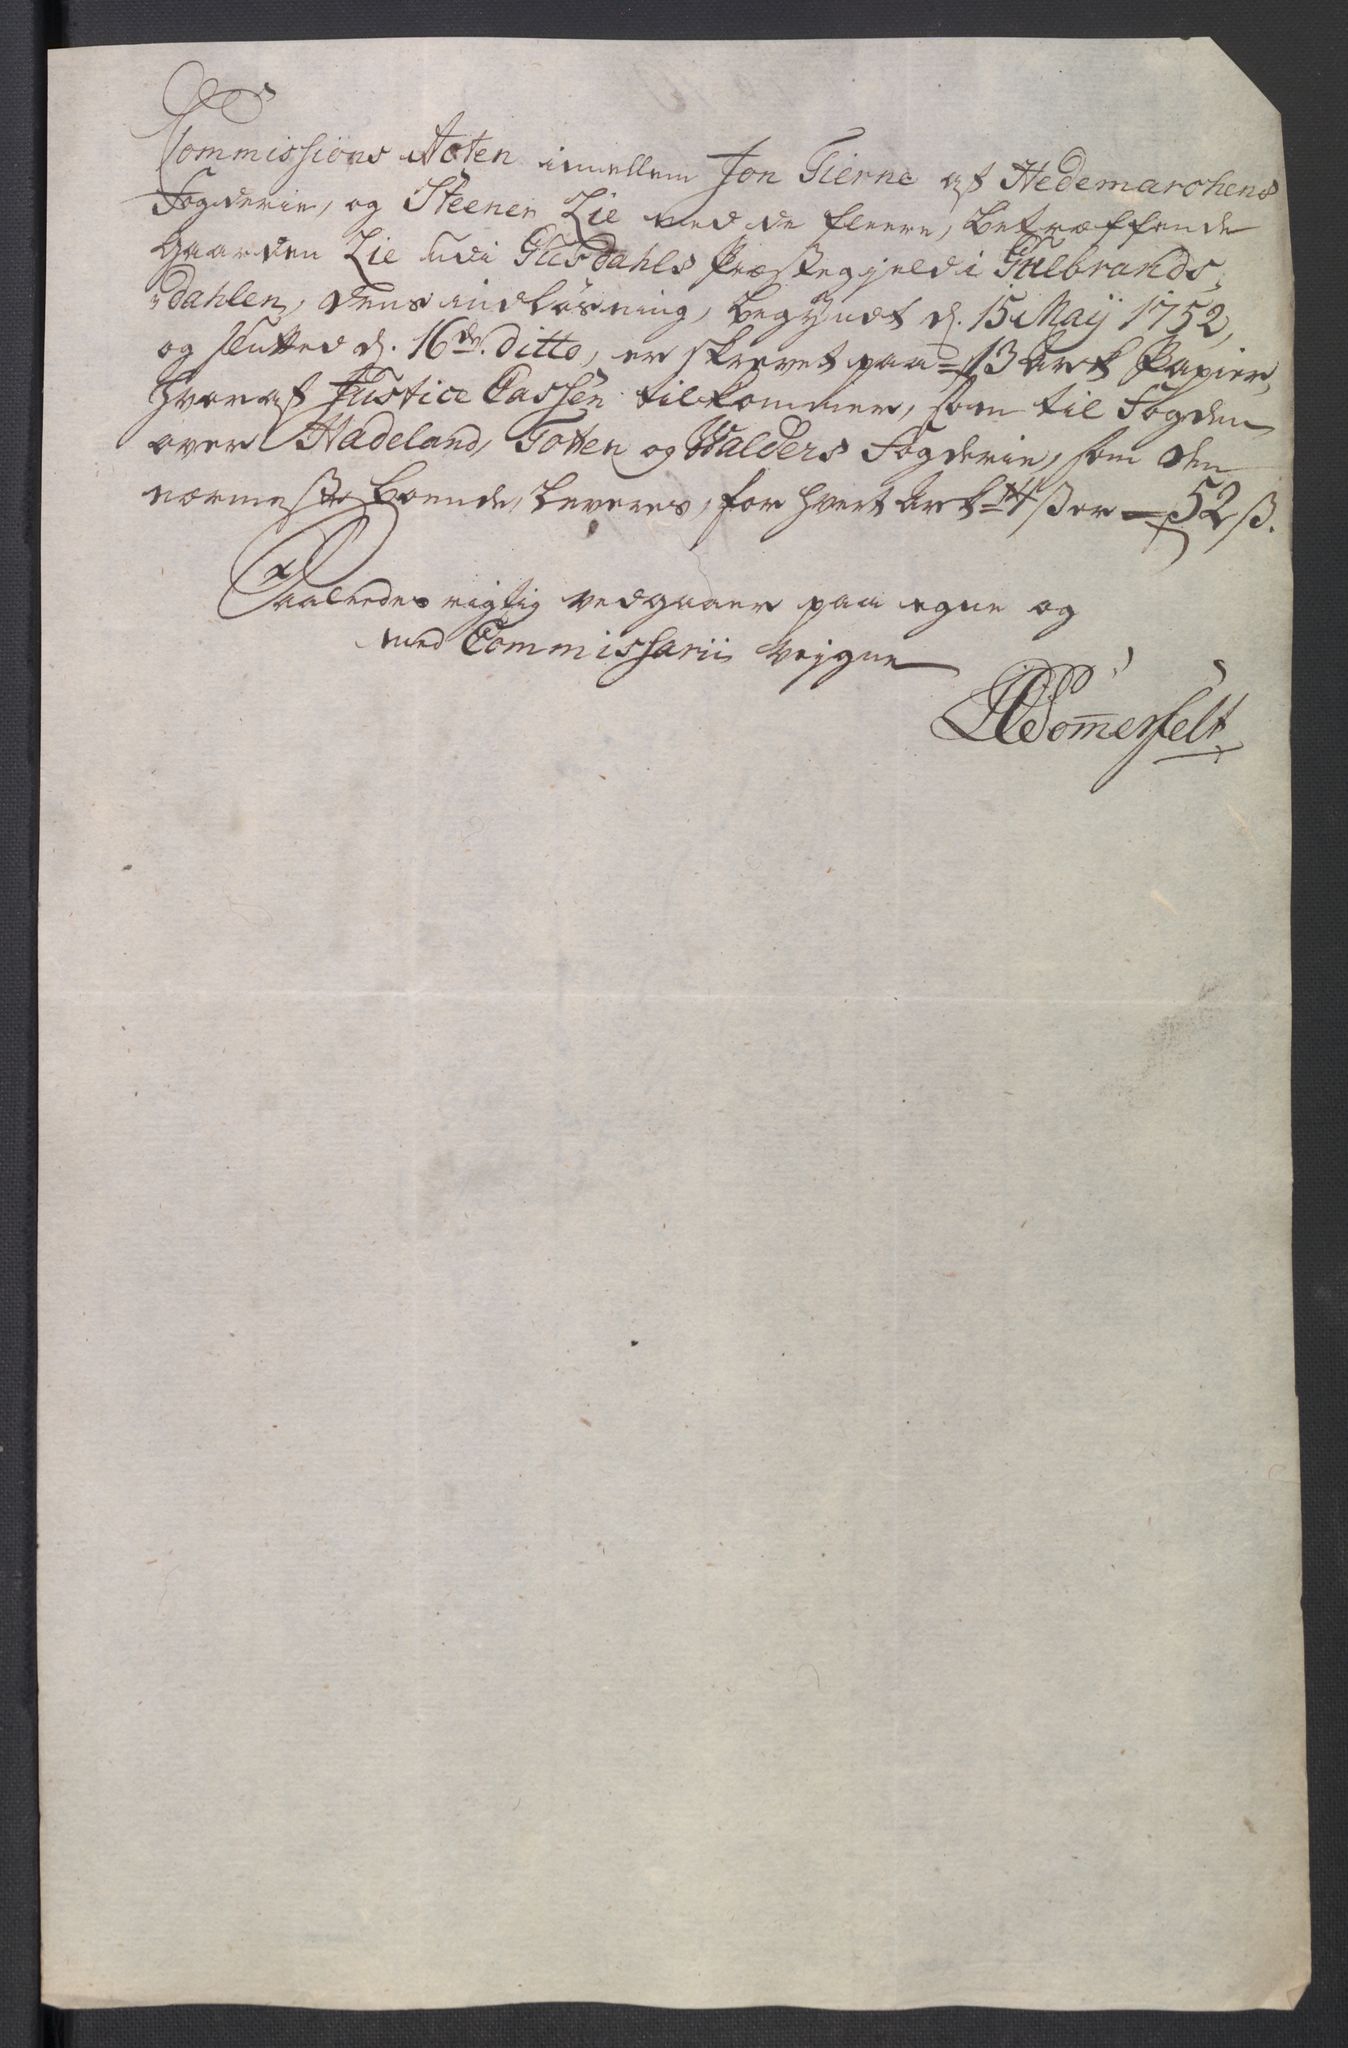 Commissions Acten imellem Jon Tierne af Hedemarchens
Fogderie, og Steener Lie med de fleere, betræffende
gaarden Lie udi Gusdahls Præstegjeld i Gulbrands-
dahlen, dens indløsning, begyndt d. 15 Maij 1752,
og slutted d. 16de ditto, er skrevet paa 13 ark Papier,
hvoraf Justice Cassen tilkommer, som til Fogden
over Hadeland, Totten og Walders Fogderie, som den
nærmeste boende, leveres, for hvert ark 4 ß er 52 ß.
Saaledes rigtig vedgaaer paa egne og
med Commissarii vejgne
Somerfelt